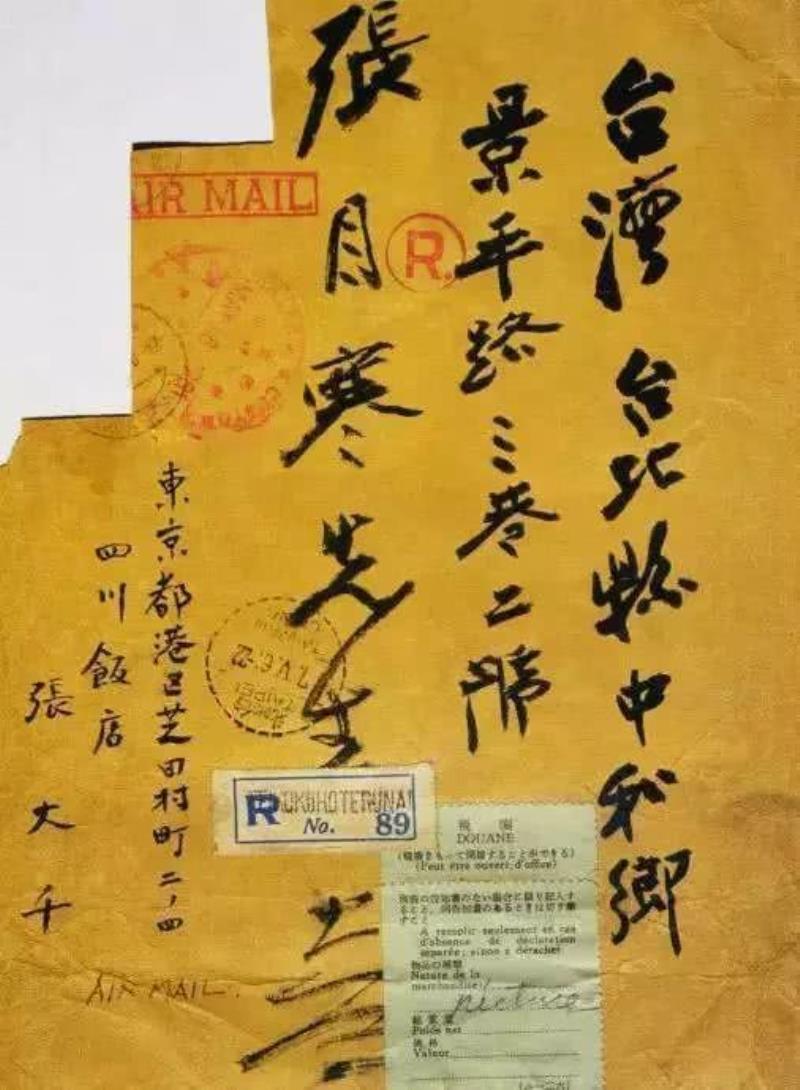 台灣台北縣中和鄉
景平路三巷二號
張目寒先生
東京都港區芝田村町二ノ四
四川飯店
張大千
AIR MAIL
R.
R
No. 89
DOUANE
(Peut être ouvert d'office)
A remplir seulement en cas
d'absence de déclaration
séparée; sinon à détacher
物品の種類
Nature de la
marchandise
picture
総重量
Poids net
価格
Valeur
AIR MAIL.